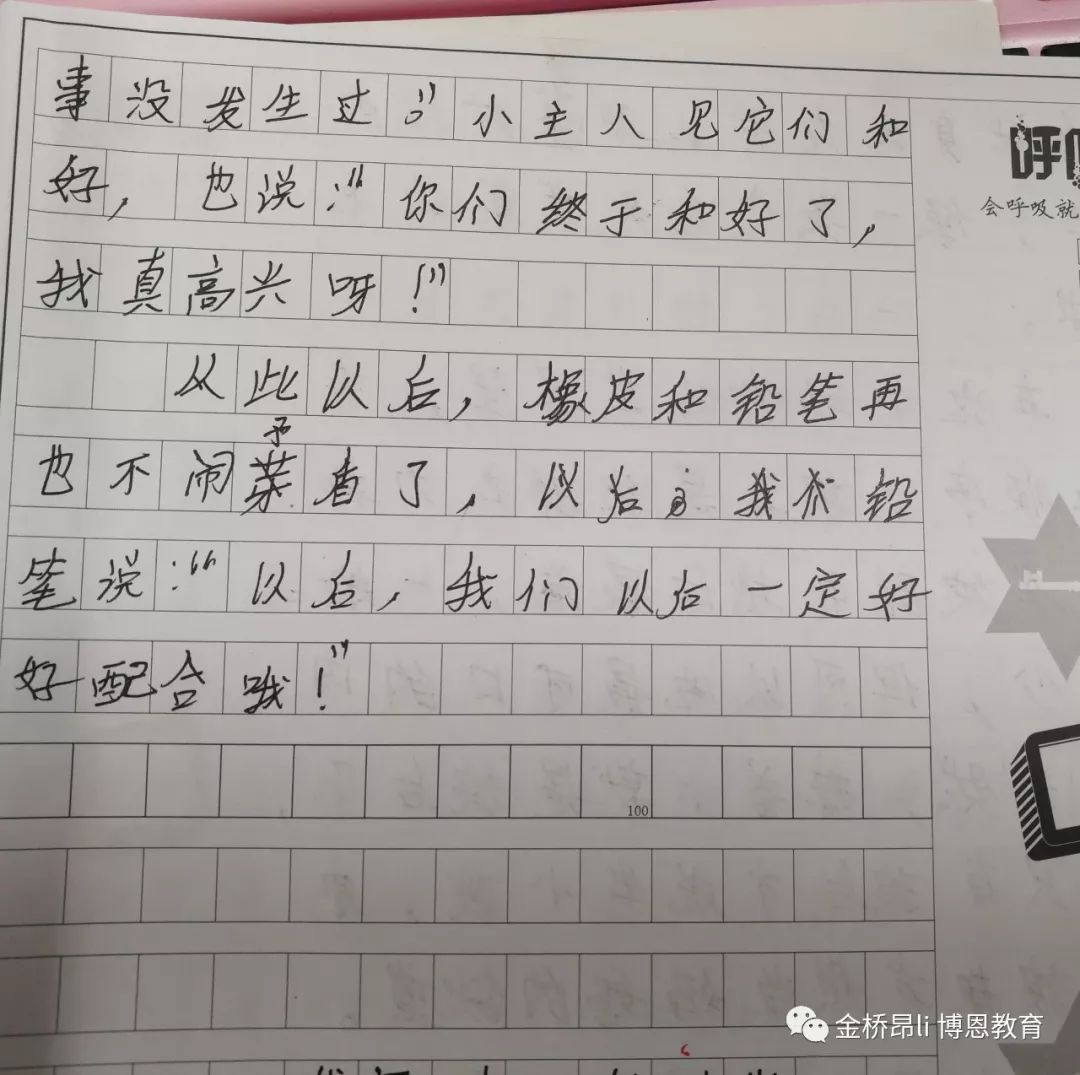 事没发生过。”小主人见它们和
好，也说：“你们终于和好了，
我真高兴呀！”
从此以后，橡皮和铅笔再
矛
也不闹盾了，以后；我铅
笔说：“以后，我们以后一定好
好配合哦！”
100
呼
会呼吸就
金桥昂li 博恩教育